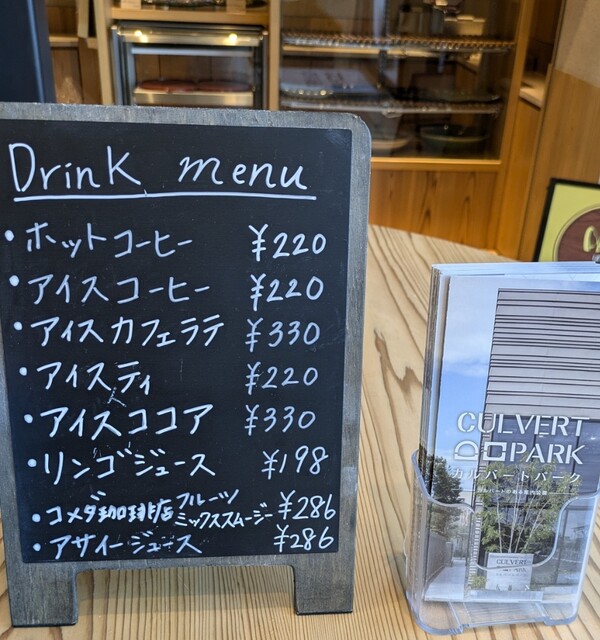 Drink menu
・ホットコーヒー ¥220
・アイスコーヒー ¥220
・アイスカフェラテ ¥330
・アイスティ ¥220
・アイスココア ¥330
・リンゴジュース ¥198
・コメダ珈琲店フルーツミックススムージー ¥286
・アサイージュース ¥286
CULVERT
PARK
カルバートパーク
CULVERT